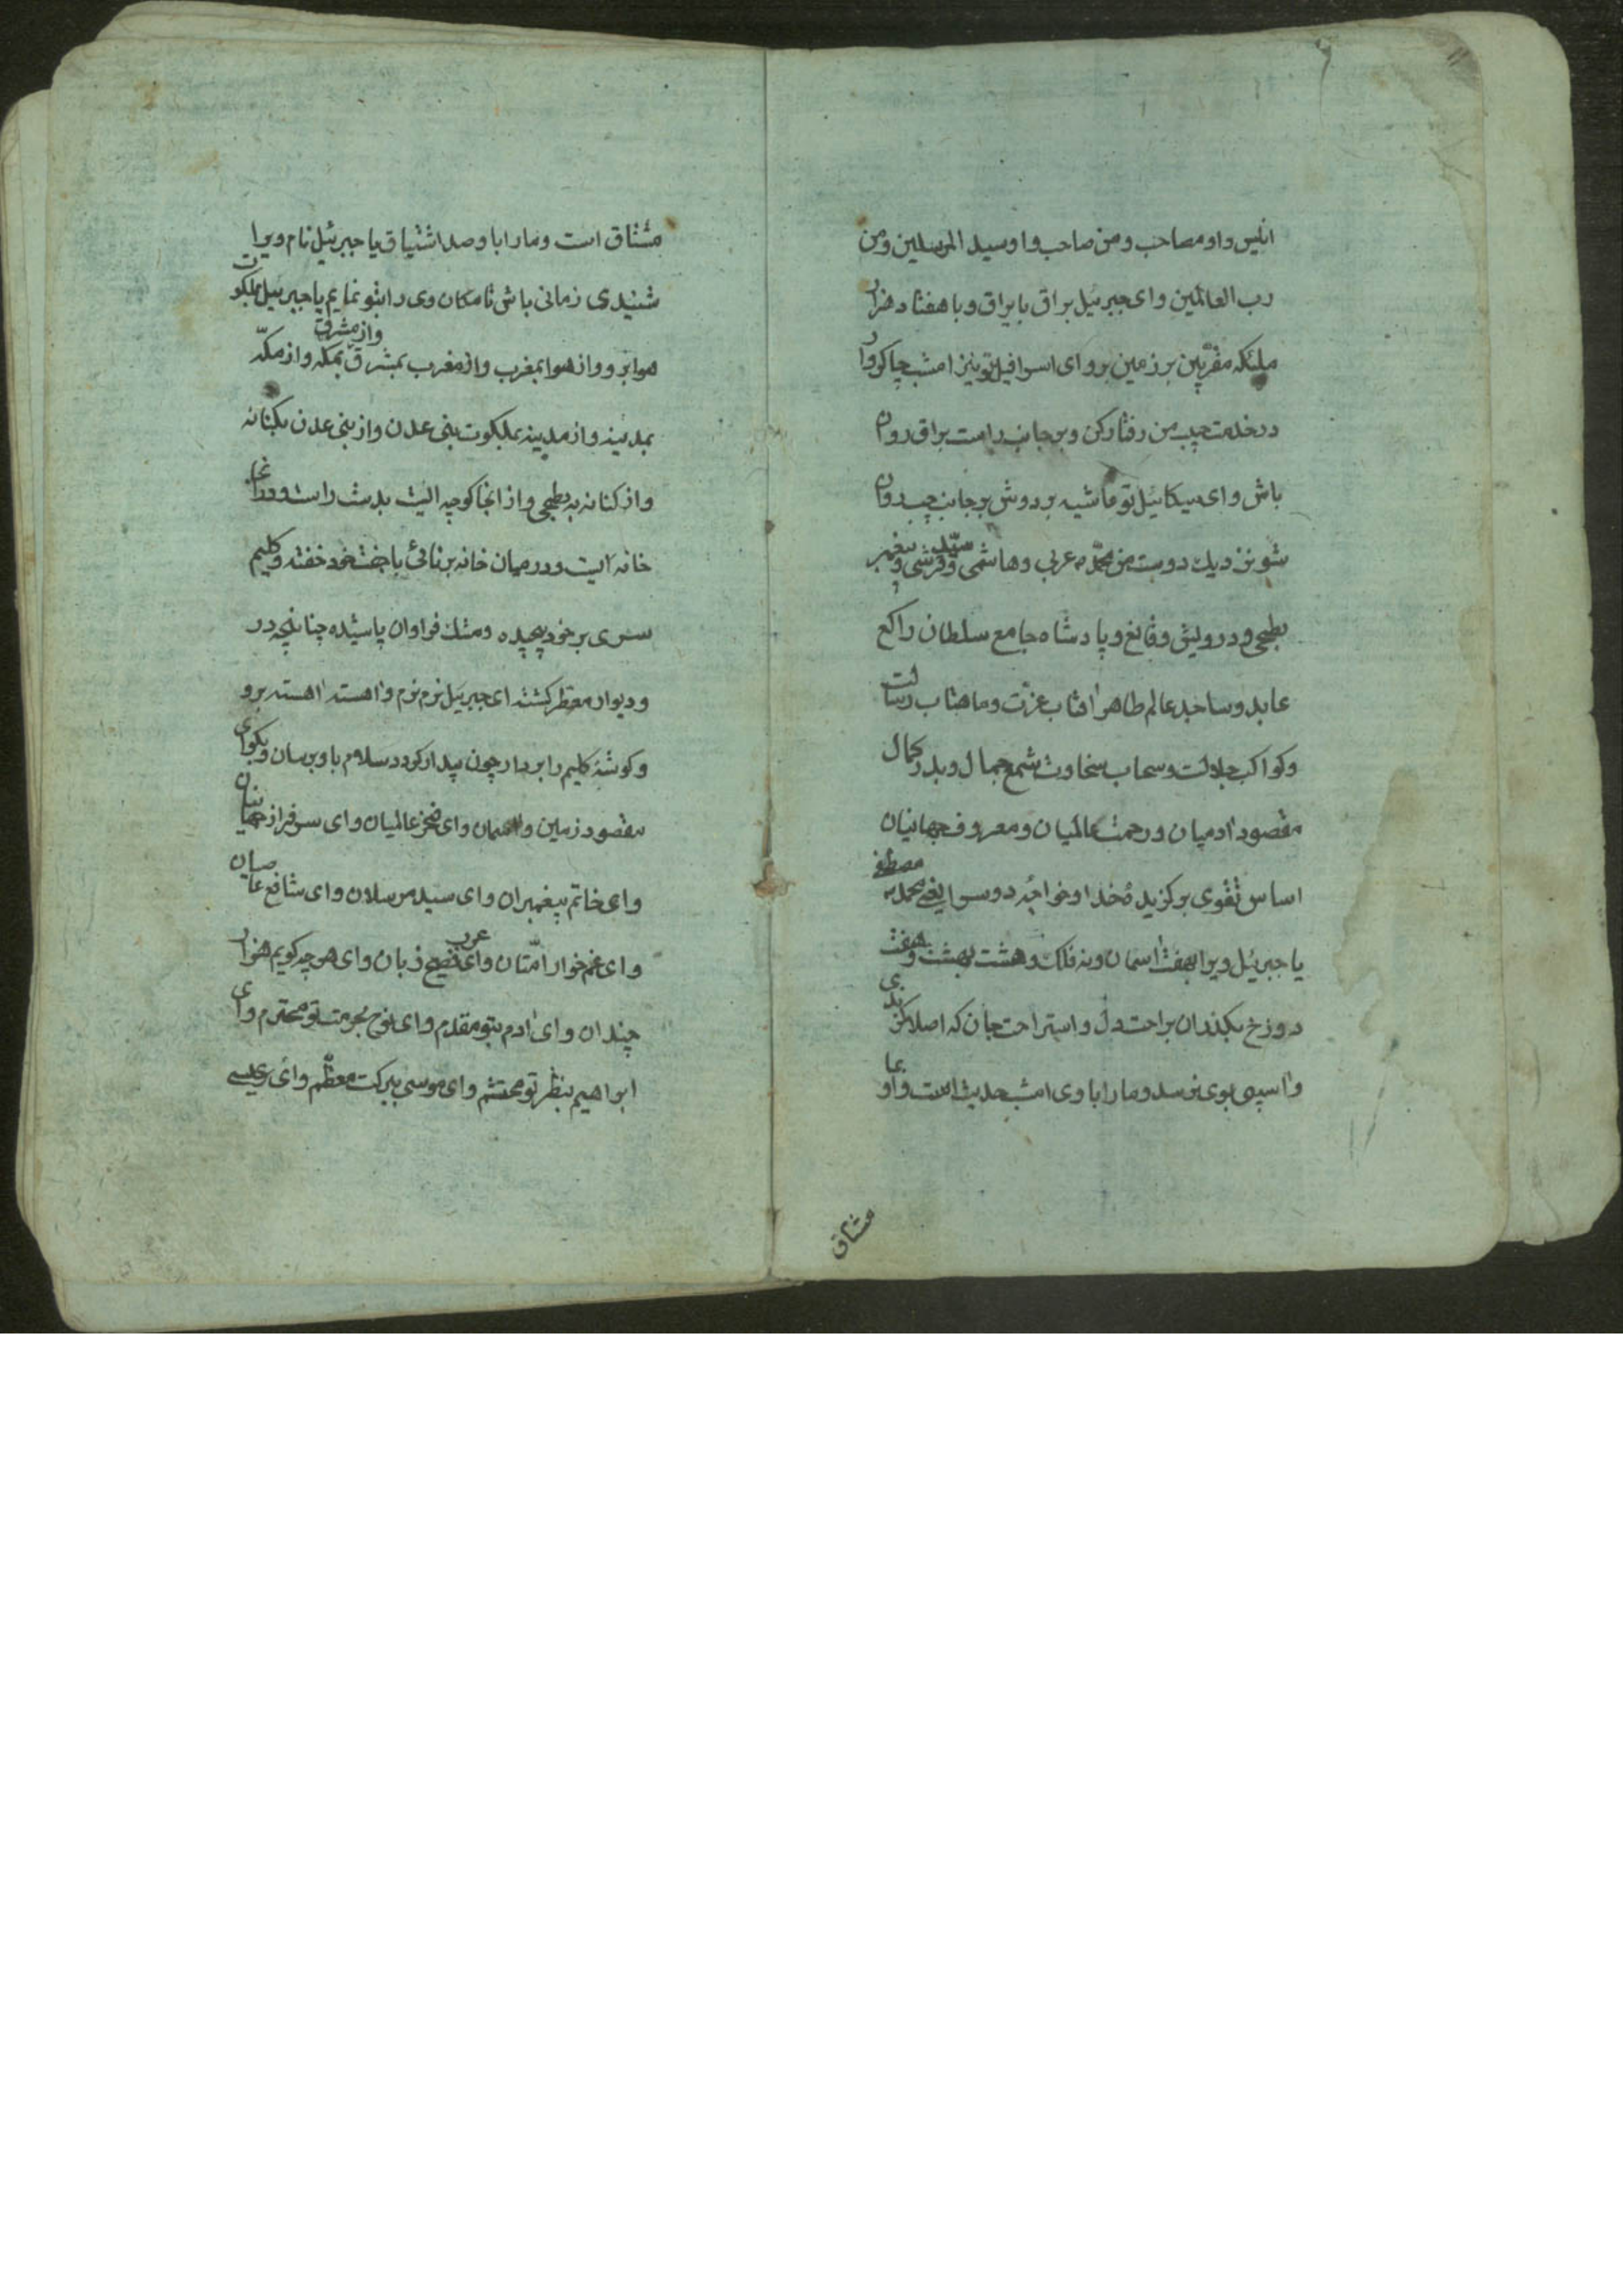 انیس و او مصاحب و من صاحب و او سید المرسلین و من
رب العالمین و ای جبرئیل براق با یراق و با هفتاد هزار
ملئکه مقربین بر زمین برو و ای اسرافیل تو نیز امشب چاکروار
در خدمت حبیب من رفتار کن و بر جانب راست براق روان
باش و ای میکائیل تو غاشیه بر دوش بر جانب چپ روان
شو نزدیك دوست من محمد عربی و هاشمی سید و قرشی و پیغمبر
بطحی و درویش و قانع و پادشاه جامع سلطان راکع
عابد و ساجد عالم طاهر افتاب عزت و ماهتاب رسالت
و کواکب جلالت و سحاب سخاوت شمع جمال و بدر کمال
مقصود ادمیان و رحمت عالمیان و معروف جهانیان
اساس تقوی برکزیدهٔ خدا و خواجهٔ دوسرا یعنی محمد مصطفی
یا جبرئیل ویرا بهفت اسمان و نه فلك و هشت بهشت و هفت
دوزخ بکذران براحت دل و استراحت جان که اصلا کزندی
و اسیبی بوی نرسد و مارا با وی امشب حدیث است و او بما
مشتاق
مشتاق است و مارا با و صد اشتیاق یا جبرئیل نام ویرا
شنیدی زمانی باش تا مکان وی را بتو نمایم یا جبرئیل بملکوت
هوا برو و از هوا بمغرب و از مغرب بمشرق و از مشرق بمکه و از مکّه
بمدینه و از مدینه بملکوت بنی عدن و از بنی عدن بکنانه
و از کنانه به بطحی و از انجا کوچه ایست بدست راست و در انجا
خانه ایست و در میان خانه برنائی با جفت خود خفته و کلیم
سری بر خود پیچیده و مشك فراوان پاشیده چنانچه در
و دیوار معطر کشته ای جبرئیل نرم نرم و اهسته اهسته برو
و کوشهٔ کلیم را بردار چون بیدار کردد سلام با و برسان و بکو ای
مقصود زمین و اسمان و ای فخر عالمیان و ای سرفراز جهانیان
و ای خاتم پیغمبران و ای سید مرسلان و ای شافع عاصیان
و ای غمخوار امّتان و ای فصیح عرب زبان و ای هر چه کویم هزار
چندان و ای ادم بتو مقدم و ای نوح بحرمت تو محترم و ای
ابراهیم بنظر تو محتشم و ای موسی ببرکت معظّم و ای عیسی